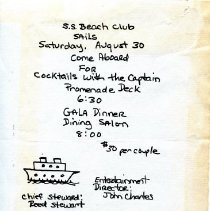 S.S. Beach Club
SAILS
Saturday, August 30
Come Aboard
FOR
Cocktails with the Captain
Promenade Deck
6:30
GALA Dinner
Dining Salon
8:00
$30 per couple
Entertainment
Director:
John Charles
Chief Steward:
Reed Stewart